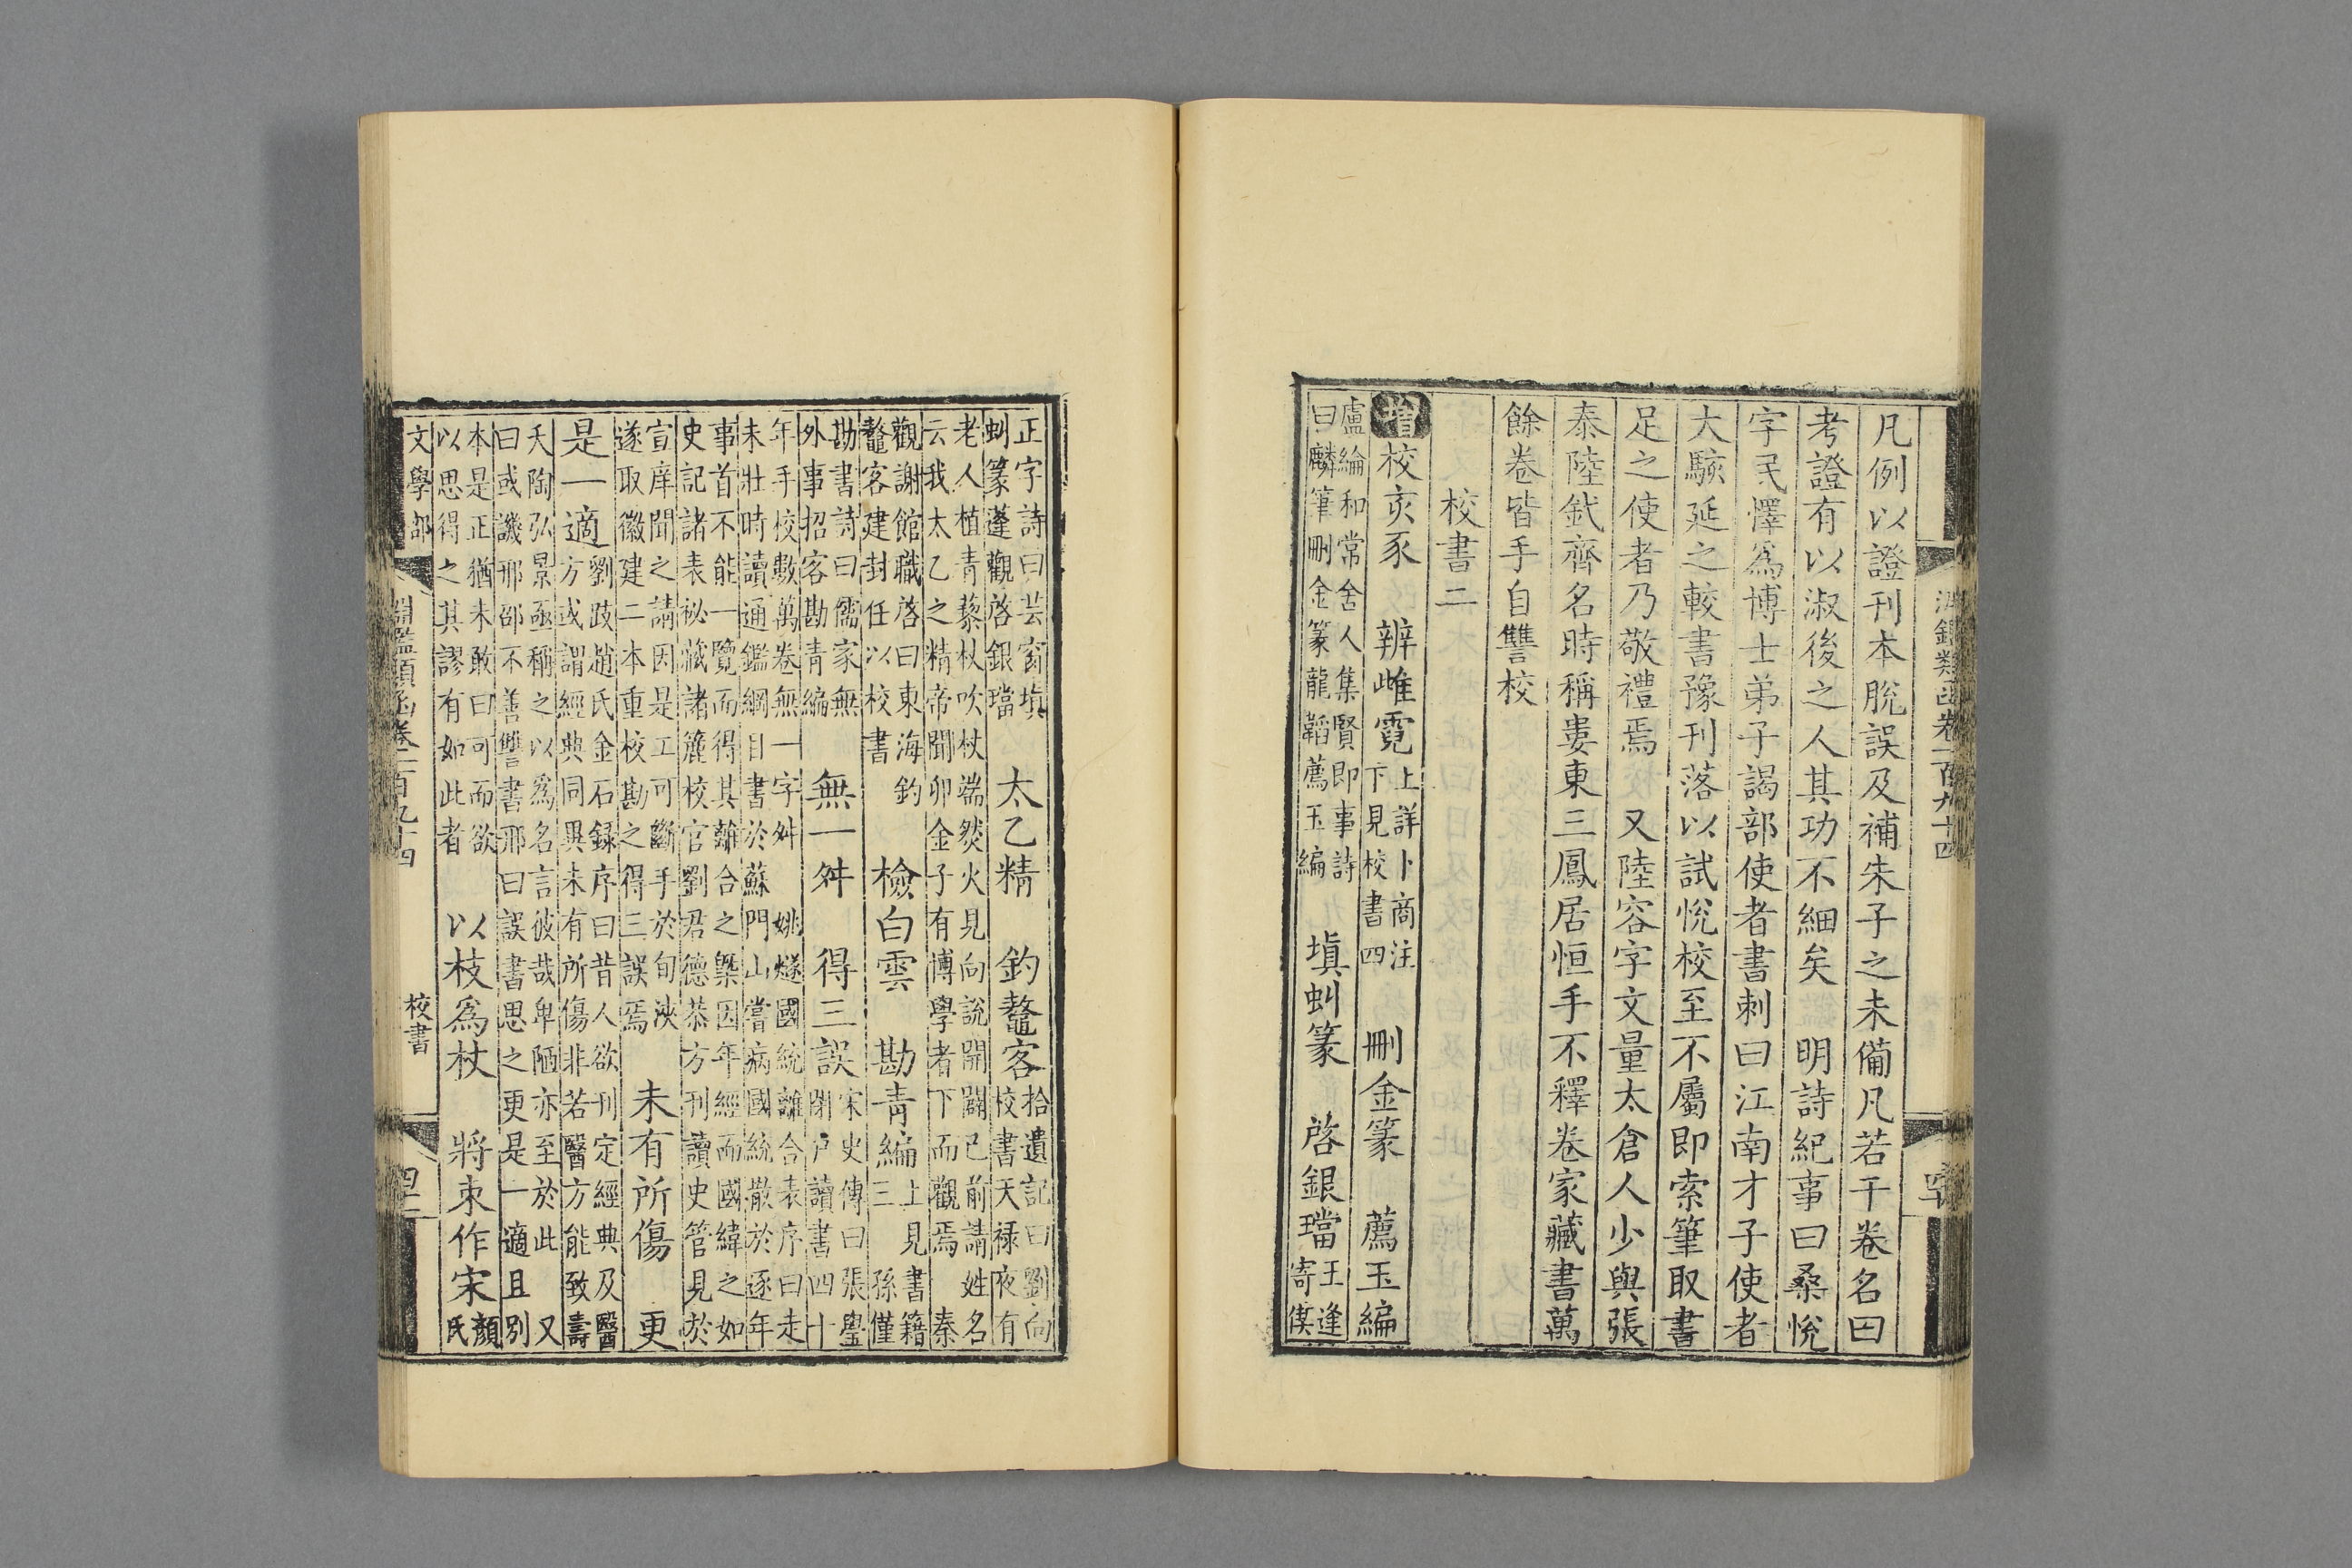 淵鑑類函卷一百九十四
凡例以證刊本脫誤及補朱子之未備凡若干卷名曰
考證有以淑後之人其功不細矣 明詩紀事曰桑悅
字民懌爲博士弟子謁部使者書刺曰江南才子使者
大駭延之較書豫刊落以試悅校至不屬即索筆取書
足之使者乃敬禮焉 又陸容字文量太倉人少與張
泰陸釴齊名時稱婁東三鳳居恒手不釋卷家藏書萬
餘卷皆手自讐校
校書二
增校亥豕 辨雌霓 上詳卜商注下見校書四 刪金篆 薦玉編
盧綸和常舍人集賢即事詩曰麟筆刪金篆龍韜薦玉編 塡虯篆 啓銀璫 王逢寄僕
正字詩曰芸窗塡虯篆蓬觀啓銀璫 太乙精 釣鼇客 拾遺記曰劉向校書天祿夜有
老人植青藜杖吹杖端然火見向說開闢已前請姓名云我太乙之精帝聞卯金子有博學者下而觀焉 秦
觀謝館職啓曰東海釣鼇客建封任以校書 檢白雲 勘青編 上見書籍三 孫僅
勘書詩曰儒家無外事招客勘青編 無一舛 得三誤 宋史傳曰張閉户讀書四十
年手校數萬卷無一字舛 姚燧國統離合表序曰走未壯時讀通鑑綱目書於蘇門山嘗病國統散於逐年
事首不能一覽而得其離合之槩因年經而國緯之如史記諸表祕藏諸簏校官劉君德恭方刊讀史管見於
宣庠聞之請因是工可斷手於旬浹遂取徽建二本重校勘之得三誤焉 未有所傷 更
是一適 劉跂趙氏金石録序曰昔人欲刊定經典及醫方或謂經典同異未有所傷非若醫方能致壽
夭陶弘景亟稱之以爲名言彼哉卑陋亦至於此 又曰或譏邢邵不善讐書邢曰誤書思之更是一適且別
本是正猶未敢曰可而欲以思得之其謬有如此者 以枝爲杖 將朿作宋 顏氏
文學部 淵鑑類函卷一百九十四 校書